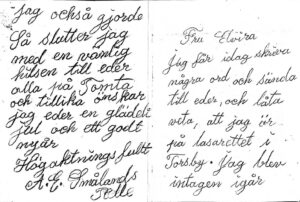 Fru Elvira
jag får idag skriva
några ord och sända
till eder, och låta
veta, att jag är
på lasarettet i
Torsby. Jag blev
intagen igår
jag också gjorde
Så slutter jag
med en vänlig
hilsen till eder
alla på Tomta
och tillika önskar
jag eder en glädeli
jul och ett godt
nyår
Högaktningsfullt
A. E. Smålands
Pelle